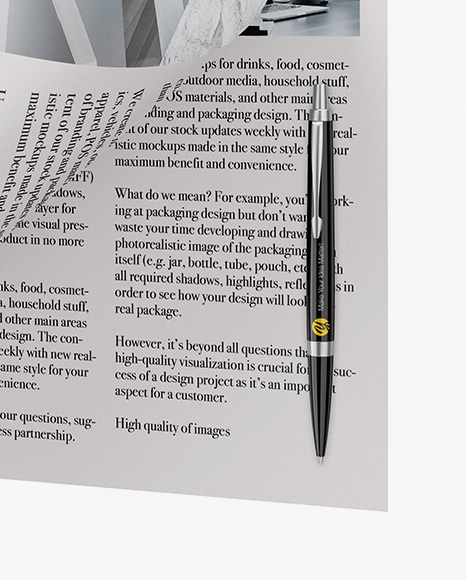 ps for drinks, food, cosmet-
outdoor media, household stuff,
than OS materials, and other main areas
ding and packaging design. The
t of our stock updates weekly with real-
istic mockups made in the same style our
maximum benefit and convenience.
What do we mean? For example, you' ork-
ing at packaging design but don't wan
waste your time developing and drawi
photorealistic image of the packaging
itself (e.g. jar, bottle, tube, pouch, etc th
all required shadows, highlights, refle s in
order to see how your design will look
real package.
However, it's beyond all questions tha
high-quality visualization is crucial fo suc-
cess of a design project as it's an impo t
aspect for a customer.
High quality of images
We create
ics, vehicles, o
apparel, POS m
of branding and
tent of our stock
istic mockups made in the
maximum benefit and
F)
dows,
ayer for
me visual pres-
oduct in no more
nks, food, cosmet-
a, household stuff,
d other main areas
design. The con-
eekly with new real-
ame style for your
enience.
our questions, sug-
ess partnership.
Make Your Pen Matter